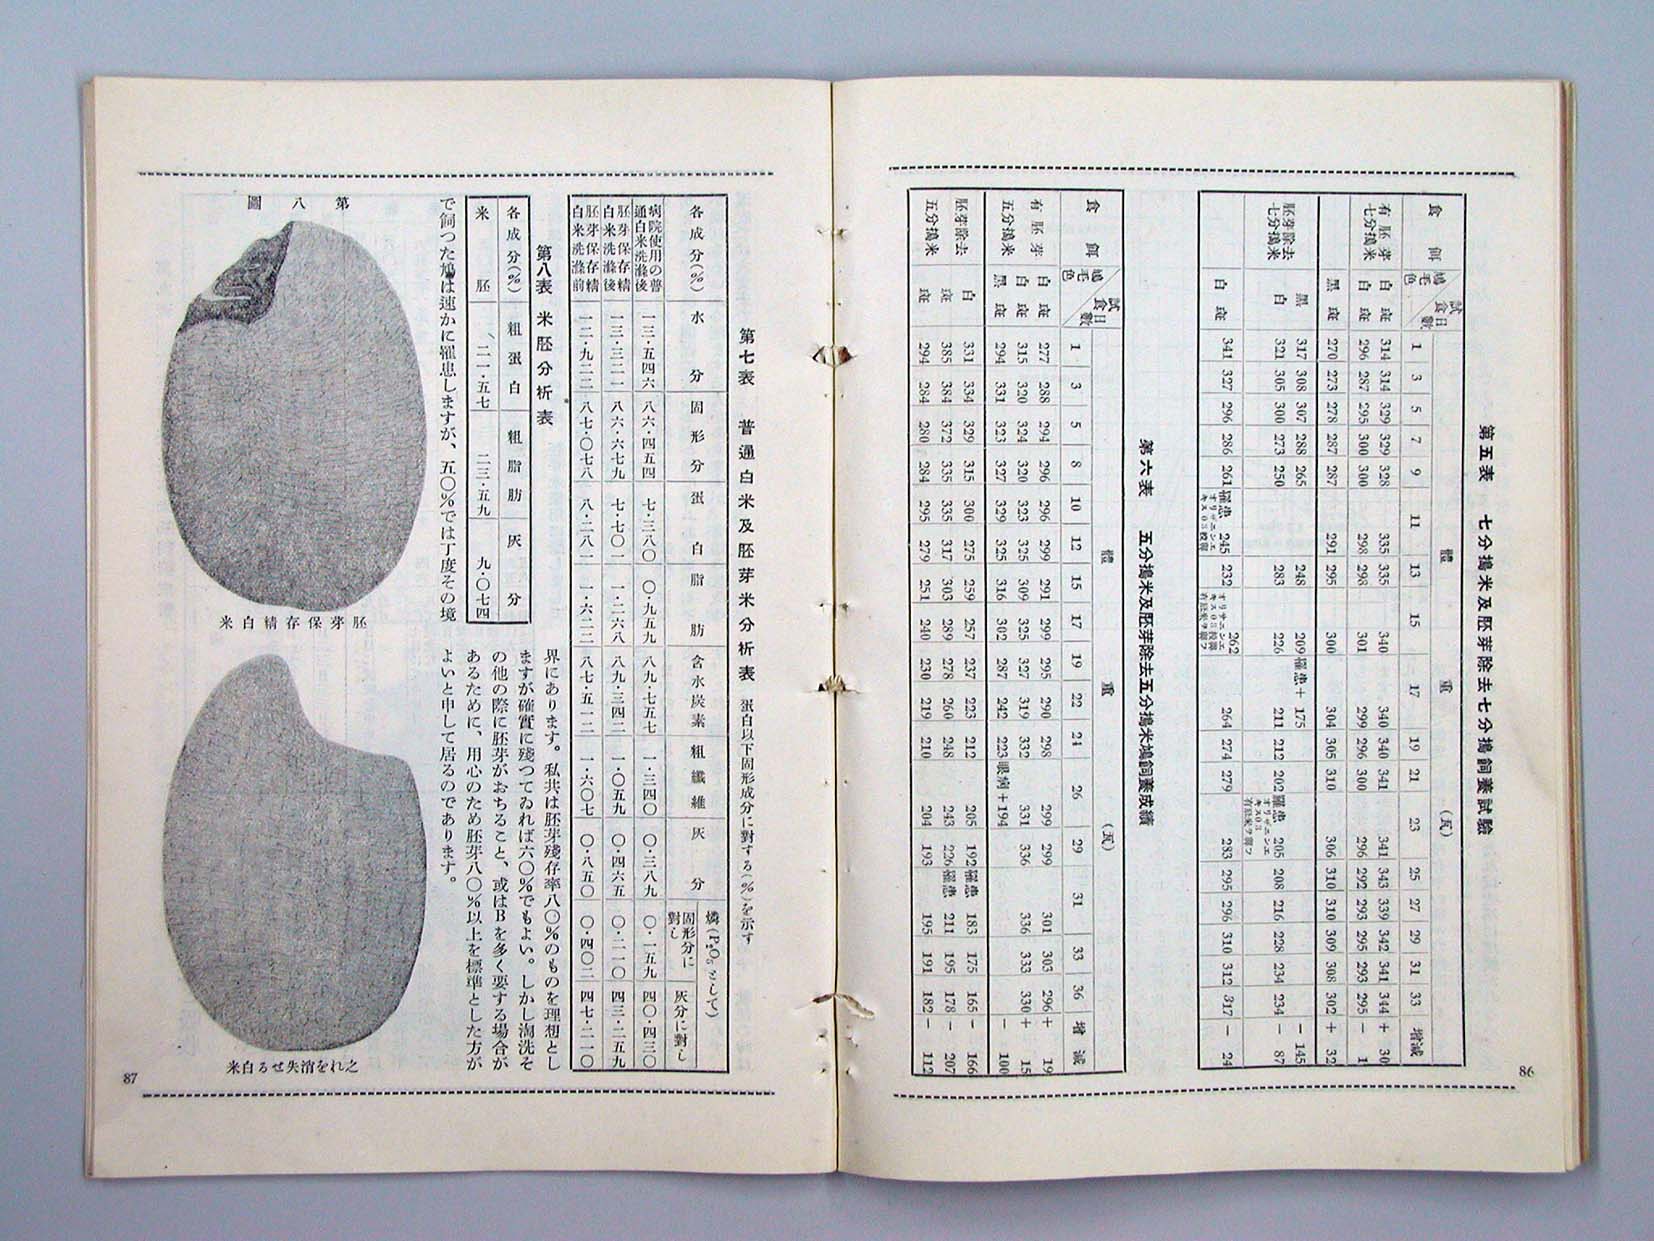 第五表 七分搗米及胚芽除去七分搗飼養試驗
食餌 鳩毛色 試食日數 體重(瓦)
1 3 5 7 9 11 13 15 17 19 21 23 25 27 29 31 33 增減
有胚芽七分搗米
白斑 314 314 329 329 328 335 335 340 340 340 341 341 343 339 342 341 344 + 30
白斑 296 287 295 300 300 298 298 301 299 296 300 296 292 293 295 293 295 − 1
黑斑 270 273 278 287 287 291 295 300 304 305 310 306 310 310 309 308 302 + 32
胚芽除去七分搗米
黑 317 308 307 288 265 248 209 罹患+175 − 145
白 321 305 300 273 250 283 226 211 212 202 罹患 オリザニンエキス0.5 有胚米ヲ與フ 205 208 216 228 234 234 − 87
白斑 341 327 296 286 261 罹患 オリザニンエキス0.5投與 245 232 オリザニンエキス0.5投與 有胚米ヲ與フ 262 264 274 279 283 295 296 310 312 317 − 24
第六表 五分搗米及胚芽除去五分搗米鳩飼養成績
食餌 鳩毛色 試食日數 體重(瓦)
1 3 5 8 10 12 15 17 19 22 24 26 29 31 33 36 增減
有胚芽五分搗米
白斑 277 288 294 296 296 299 291 299 295 290 298 299 299 301 303 296 + 19
白斑 315 320 324 320 323 325 309 325 327 319 332 331 336 336 333 330 + 15
黑斑 294 331 323 327 329 325 316 302 287 242 223 眼病+194 − 100
胚芽除去五分搗米
白 331 334 329 315 300 275 259 257 237 223 212 205 192 罹患 183 175 165 − 166
385 384 372 335 335 317 303 289 278 260 248 243 226 罹患 211 195 178 − 207
斑 294 284 280 284 295 279 251 240 230 219 210 204 193 195 191 182 − 112
86
第七表 普通白米及胚芽米分析表 蛋白以下固形成分に對する(%)を示す
各成分(%) 水分 固形分 蛋白 脂肪 含水炭素 粗纖維 灰分 燐(P₂O₅として) 固形分に對し 灰分に對し
病院使用の普通白米洗滌後 一三・五四六 八六・四五四 七・三八〇 〇・九五九 八九・七五七 一・三四〇 〇・三八九 〇・一五九 四〇・四三〇
胚芽保存精白米洗滌後 一三・三二一 八六・六七九 七・七〇一 一・二六八 八九・三四二 一・〇五九 〇・四六五 〇・二一〇 四三・二五九
胚芽保存精白米洗滌前 一二・九二二 八七・〇七八 八・二八一 一・六二二 八七・五一二 一・六〇七 〇・八五〇 〇・四〇二 四七・二一〇
第八表 米胚分析表
各成分(%) 粗蛋白 粗脂肪 灰分
米胚 二一・五七 二三・五九 九・〇七四
で飼つた鳩は速かに罹患しますが、五〇%では丁度その境
界にあります。私共は胚芽殘存率八〇%のものを理想とし
ますが確實に殘つてゐれば六〇%でもよい。しかし淘洗そ
の他の際に胚芽がおちること、或はBを多く要する場合が
あるために、用心のため胚芽八〇%以上を標準とした方が
よいと申して居るのであります。
第八圖
胚芽保存精白米
之れを消失せる白米
87